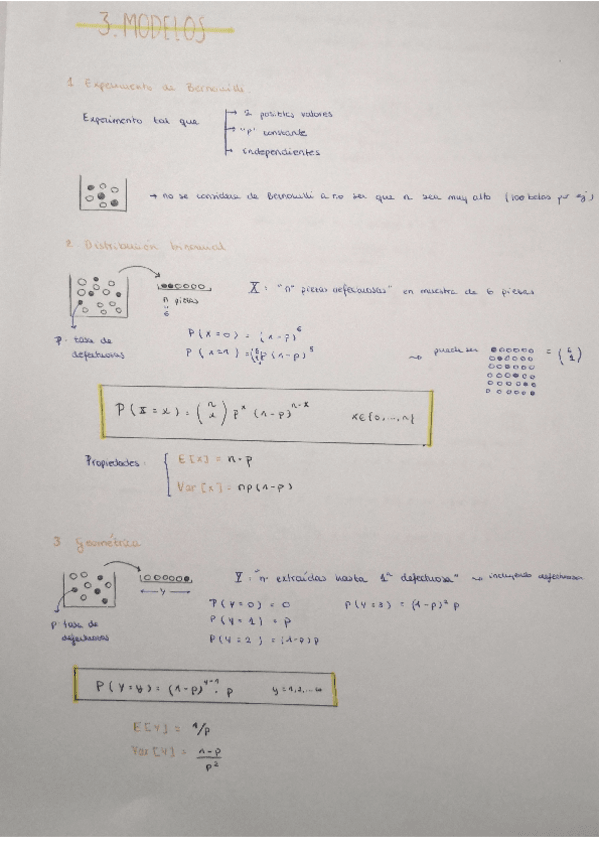 3. MODELOS
1. Experimento de Bernouilli.
Experimento tal que
→ 2 posibles valores
→ "p" constante
→ independientes
→ no se considera de Bernouilli a no ser que n sea muy alto (100 bolas por ej)
2. Distribución binomial
n piezas
=
6
X: "nº piezas defectuosas" en muestra de 6 piezas
p: tasa de defectuosas
P(X=0) = (1-p)^6
P(X=1) = (6 1) p (1-p)^5
→ puede ser
= (6 1)
P(X=x) = (n x) p^x (1-p)^{n-x} x∈{0,...,n}
Propiedades:
E[X] = n·p
Var[X] = np(1-p)
3. Geométrica
← y →
p tasa de defectuosas
Y: "nº extraídas hasta 1ª defectuosa" → incluyendo defectuosa
P(Y=0) = 0
P(Y=3) = (1-p)² p
P(Y=1) = p
P(Y=2) = (1-p)p
P(Y=y) = (1-p)^{y-1} · p y=1,2,...∞
E[Y] = 1/p
Var[Y] = 1-p / p²